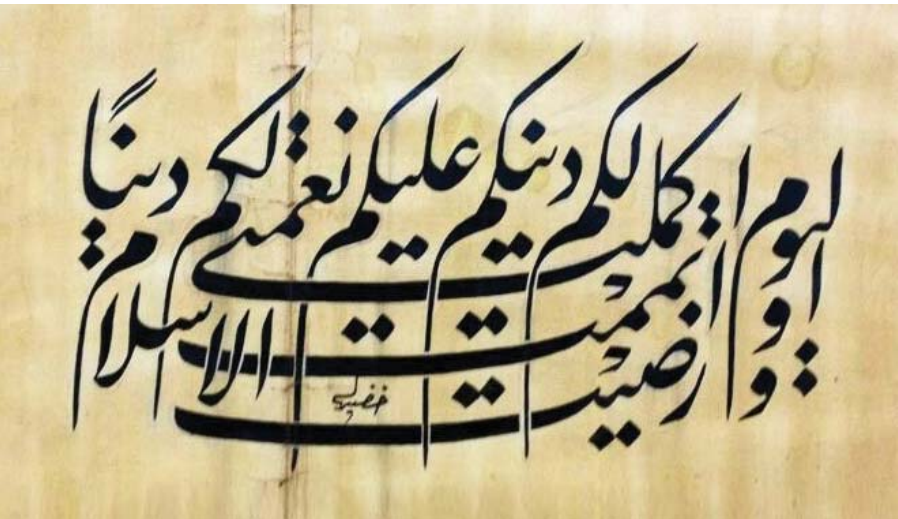 اليوم اكملت لكم دينكم و اتممت عليكم نعمتي و رضيت لكم الاسلام دينًا